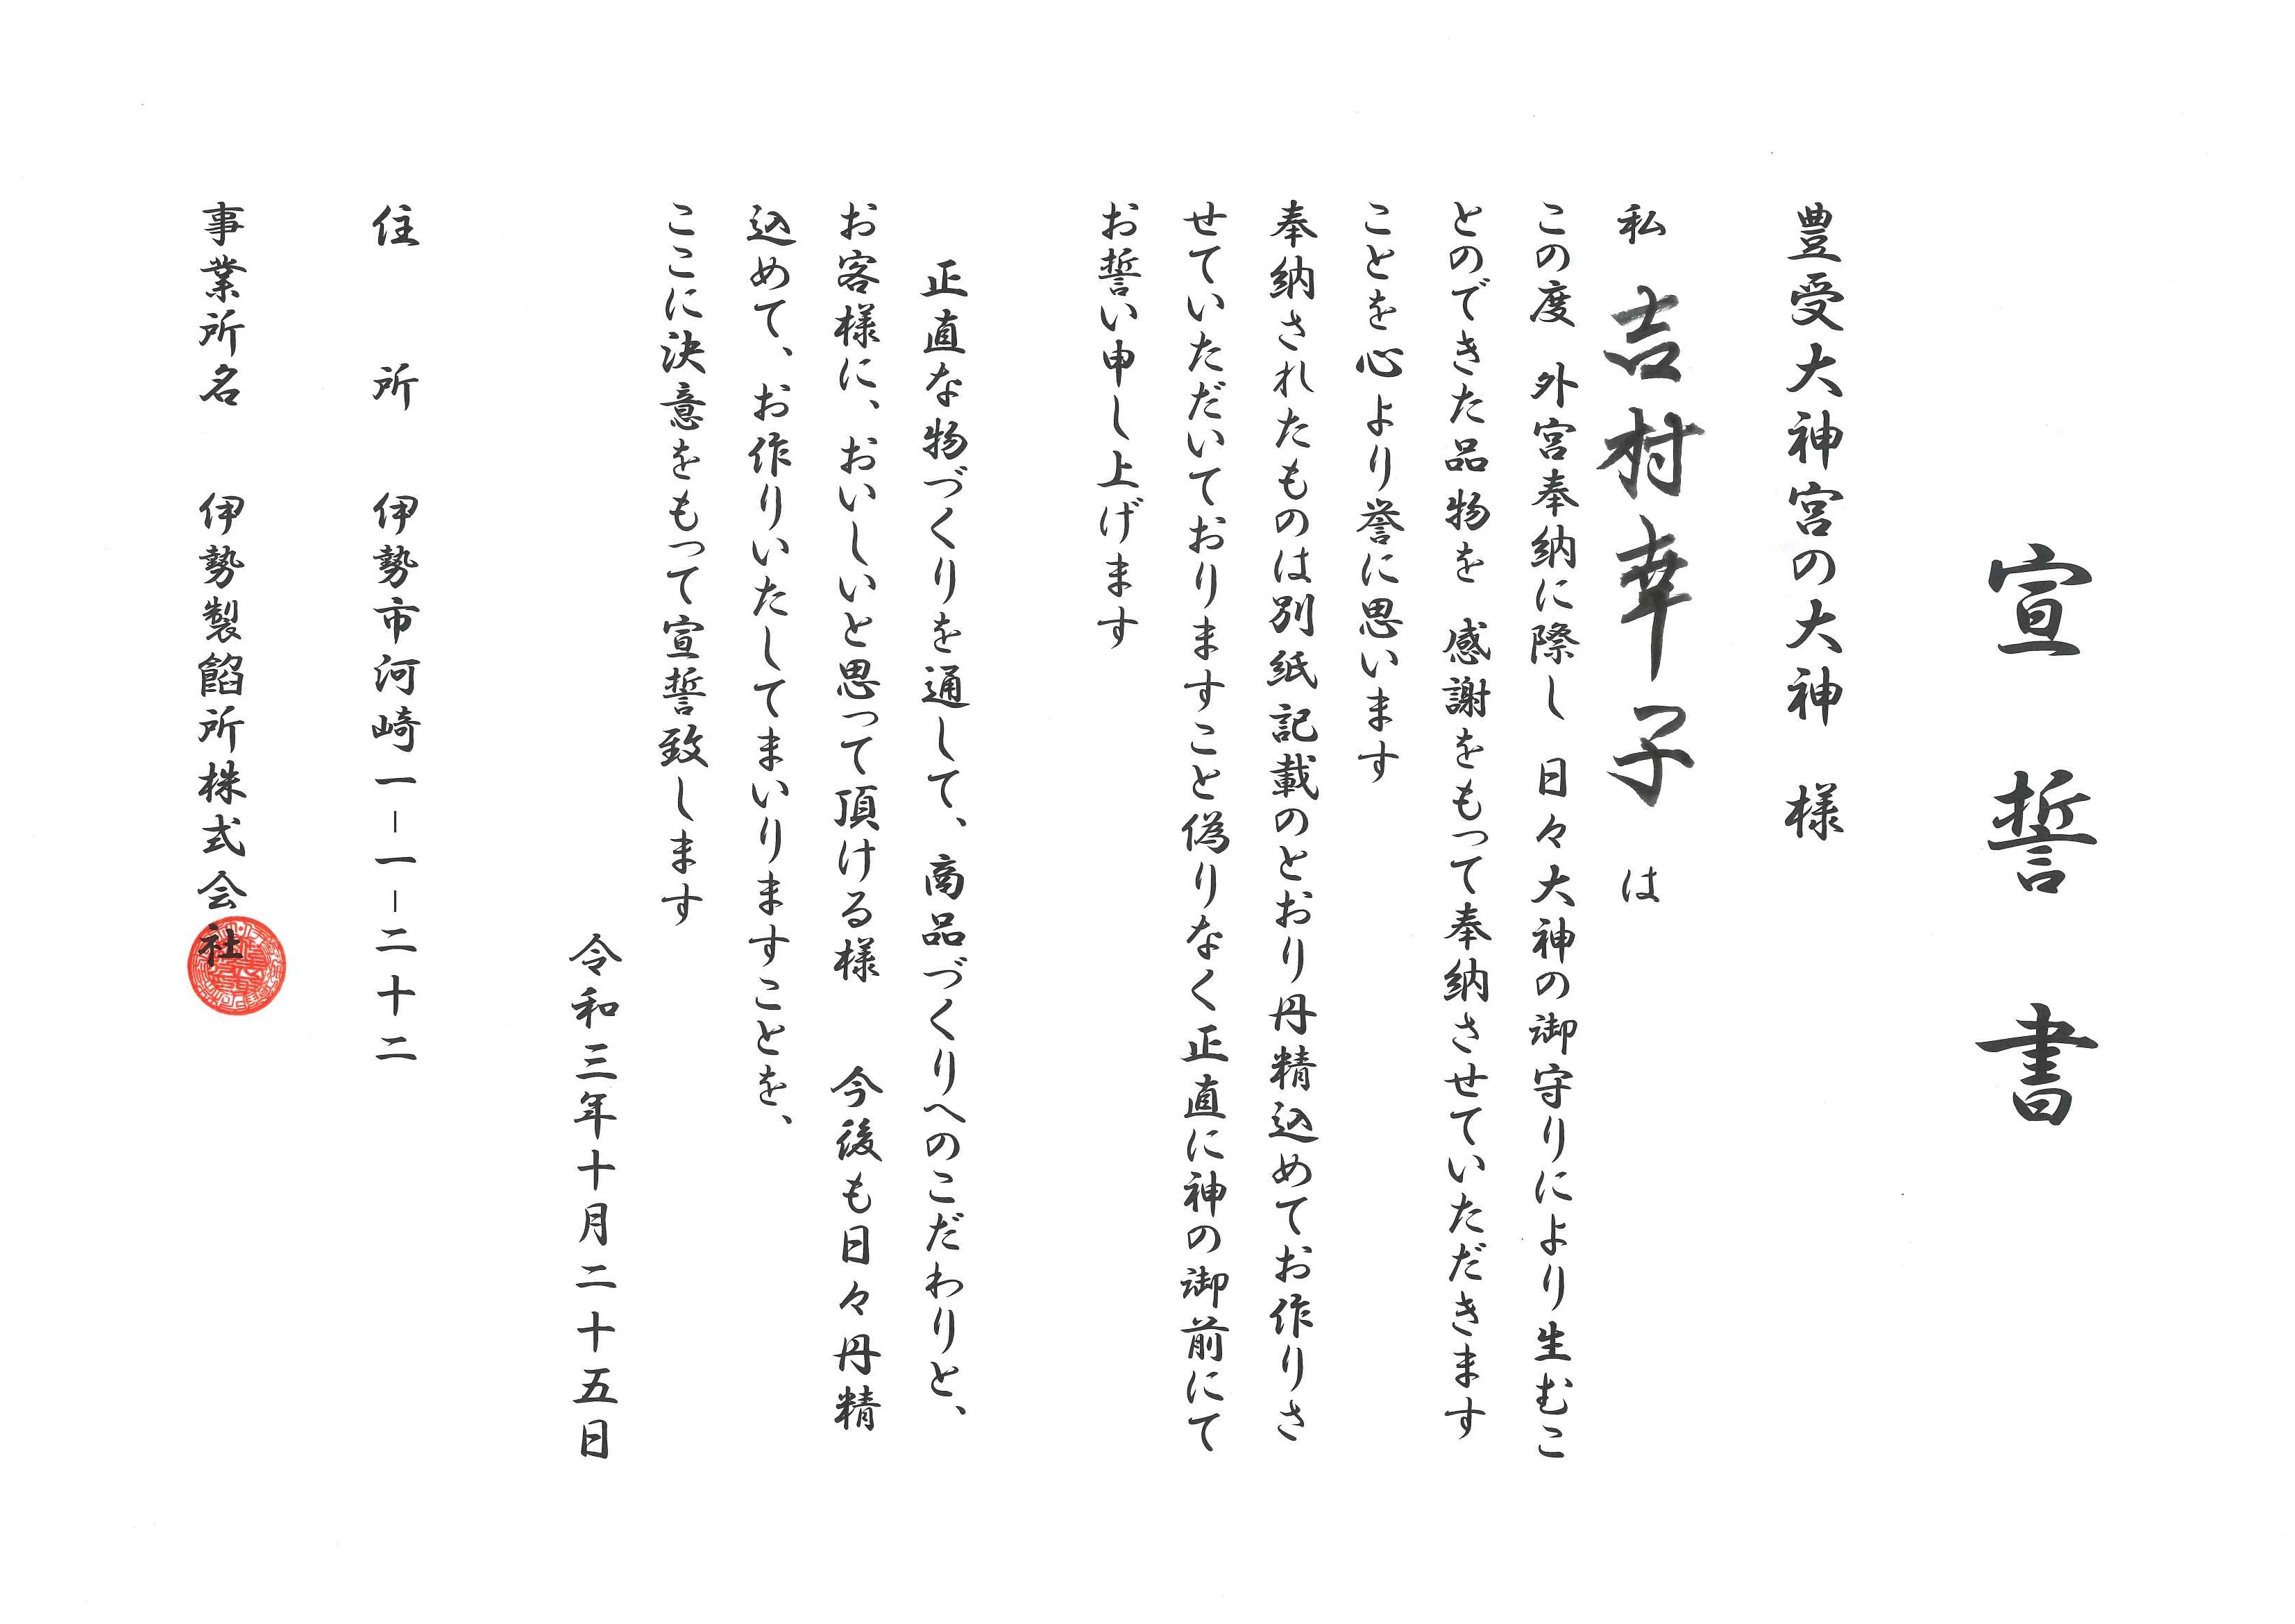 宣誓書
豊受大神宮の大神 様
私 吉村幸子 は
この度 外宮奉納に際し 日々大神の御守りにより生むこ
とのできた品物を 感謝をもって奉納させていただきます
ことを心より誉に思います
奉納されたものは別紙記載のとおり丹精込めてお作りさ
せていただいておりますこと偽りなく正直に神の御前にて
お誓い申し上げます
正直な物づくりを通して、商品づくりへのこだわりと、
お客様に、おいしいと思って頂ける様 今後も日々丹精
込めて、お作りいたしてまいりますことを、
ここに決意をもって宣誓致します
令和三年十月二十五日
住所 伊勢市河崎一-一-二十二
事業所名 伊勢製餡所株式会社